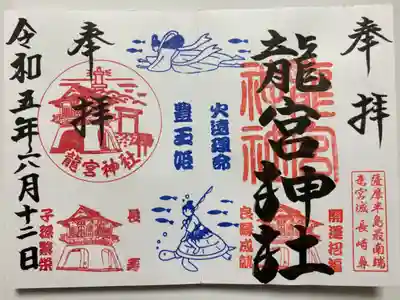 奉拝
薩摩半島最南端
長崎鼻
龍宮神社
龍宮神社
開運招福
良縁成就
火遠理命
豊玉姫
奉拝
龍宮神社
長寿
子孫繁栄
令和五年六月十二日